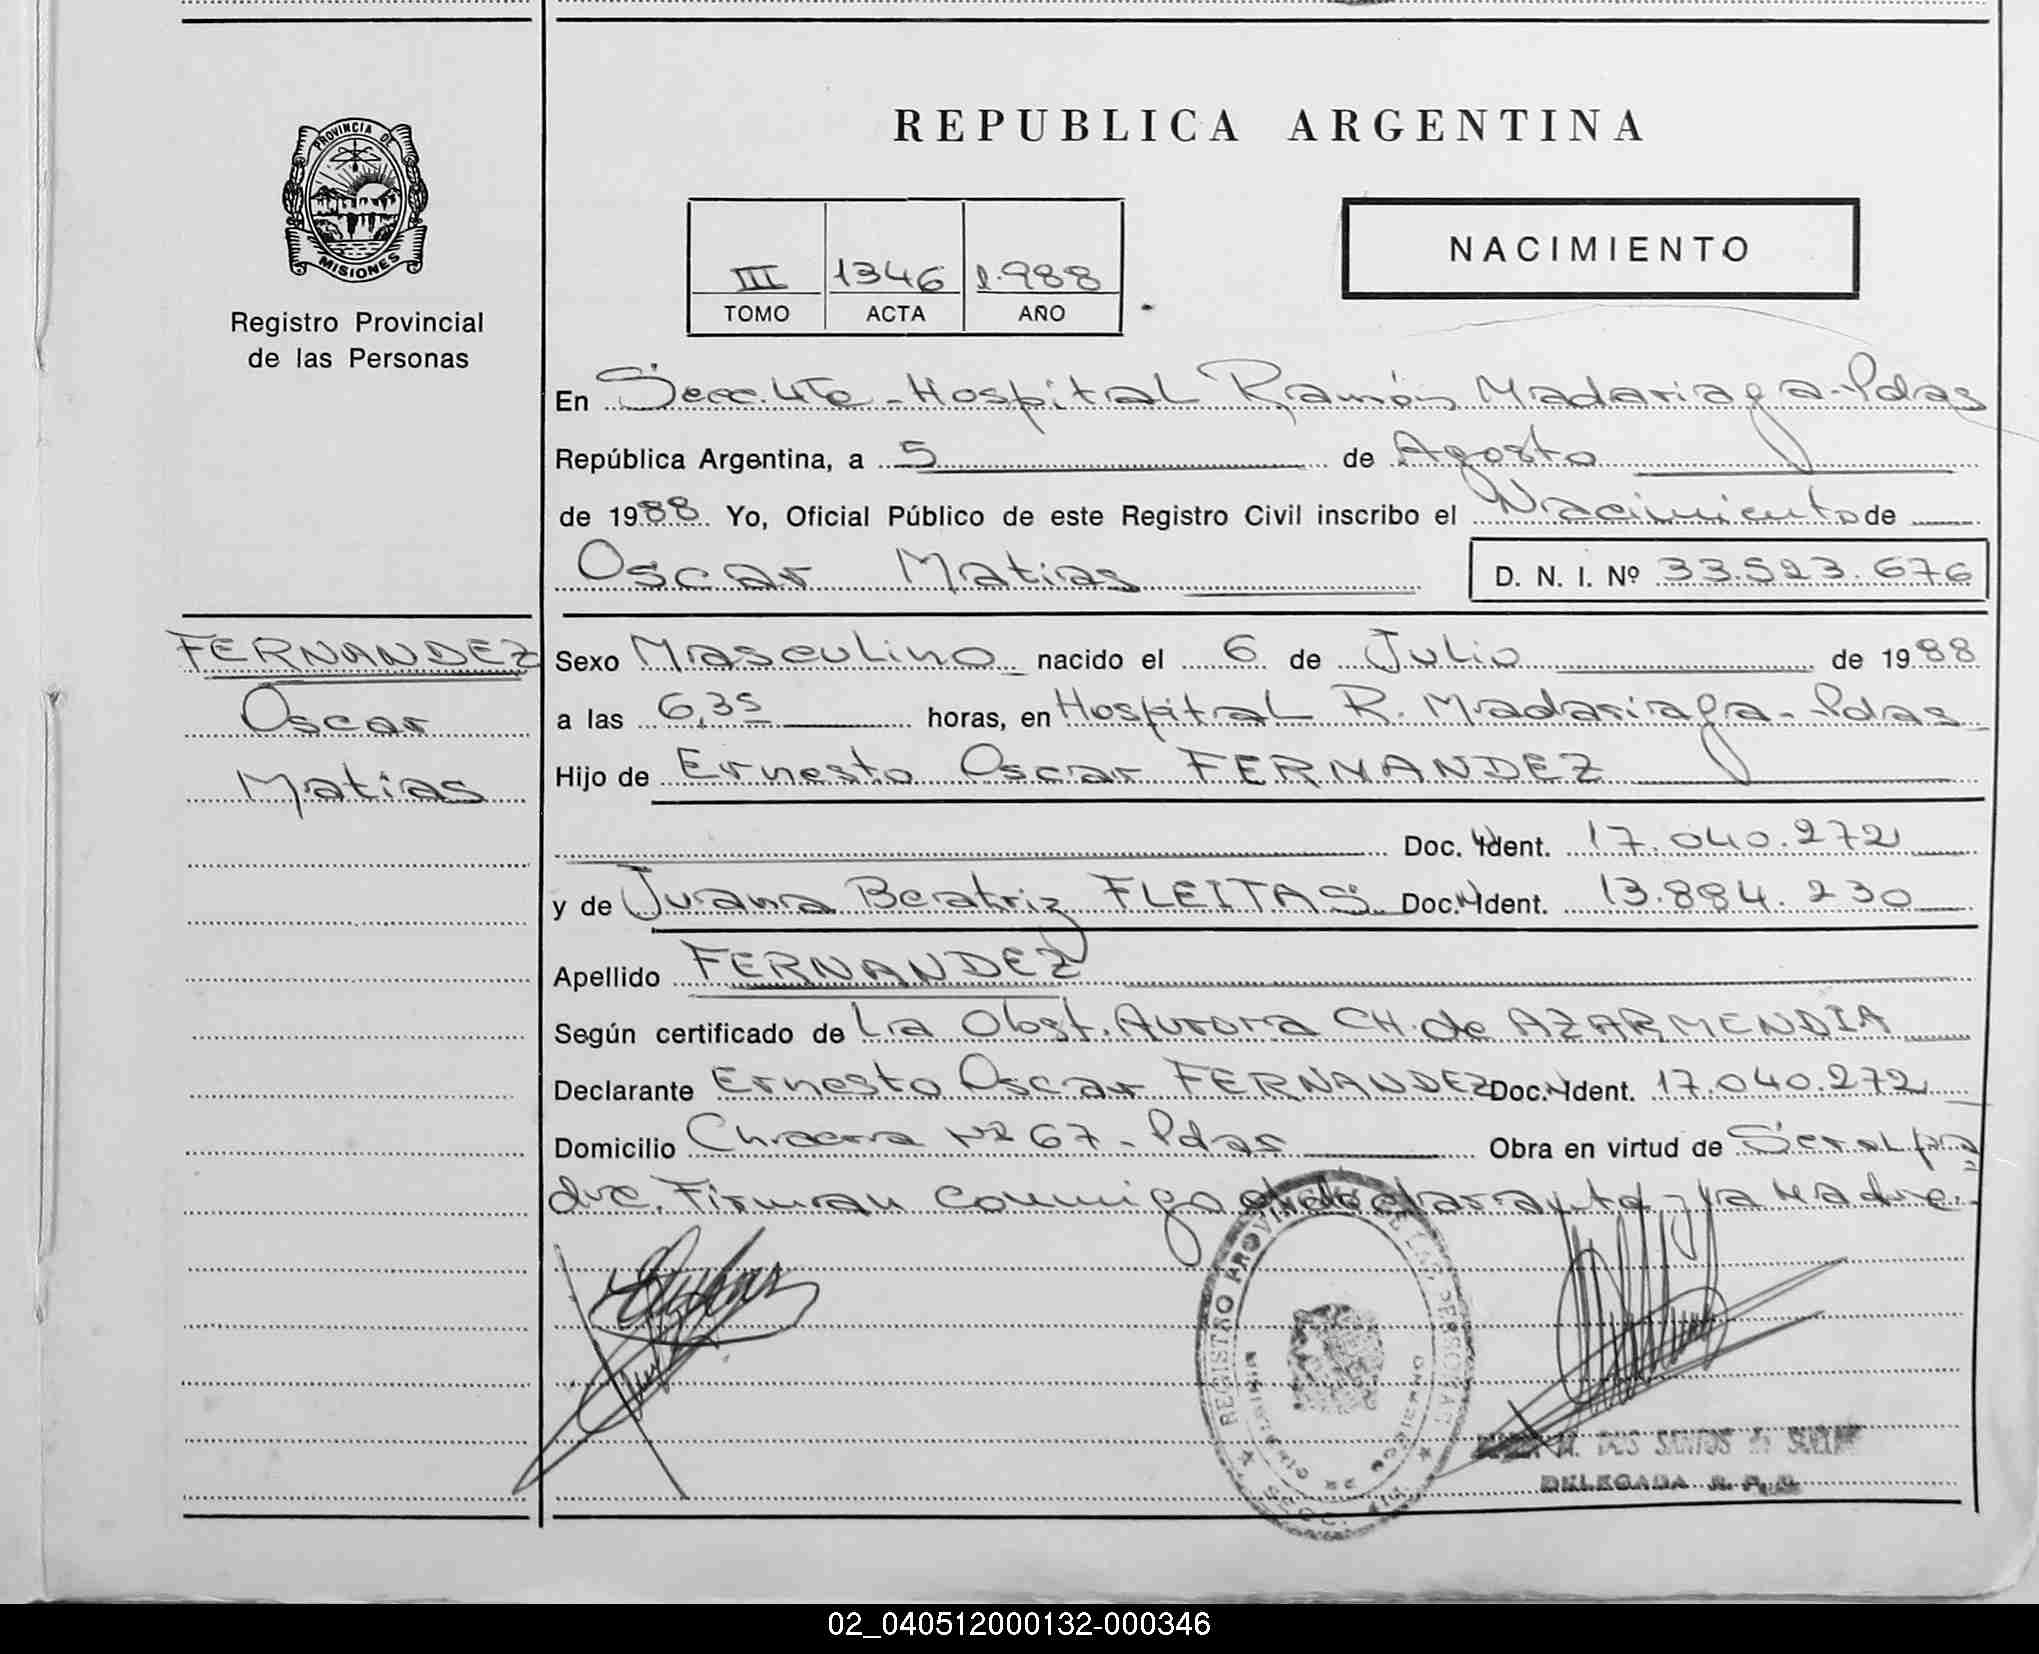 PROVINCIA DE
MISIONES
Registro Provincial
de las Personas
FERNANDEZ
Oscar
Matias
REPUBLICA ARGENTINA
III 1346 1.988
TOMO ACTA AÑO
NACIMIENTO
En Secc. 4ta - Hospital Ramón Madariaga - Pdas
República Argentina, a 5 de Agosto
de 1988 Yo, Oficial Público de este Registro Civil inscribo el Nacimiento de
Oscar Matias D. N. I. Nº 33.523.676
Sexo Masculino nacido el 6 de Julio de 1988
a las 6,35 horas, en Hospital R. Madariaga - Pdas
Hijo de Ernesto Oscar FERNANDEZ
Doc. Ident. 17.040.272
y de Juana Beatriz FLEITAS Doc. Ident. 13.884.230
Apellido FERNANDEZ
Según certificado de La Obst. Aurora CH. de AZARMENDIA
Declarante Ernesto Oscar FERNANDEZ Doc. Ident. 17.040.272
Domicilio Chacra Nº 67 - Pdas Obra en virtud de Ser el pa
dre. Firman conmigo el declarante y la Madre.
REGISTRO PROVINCIAL DE LAS PERSONAS
M. DOS SANTOS de
DELEGADA R. P. P.
02_040512000132-000346